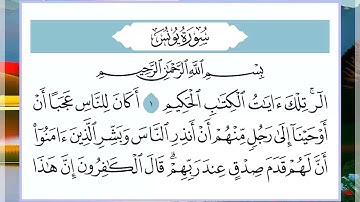 سُورَةُ يُونُسَ
بِسْمِ اللَّهِ الرَّحْمَٰنِ الرَّحِيمِ
الٓرۚ تِلْكَ ءَايَٰتُ الْكِتَٰبِ الْحَكِيمِ ١ أَكَانَ لِلنَّاسِ عَجَبًا أَنْ
أَوْحَيْنَآ إِلَىٰ رَجُلٍ مِّنْهُمْ أَنْ أَنذِرِ النَّاسَ وَبَشِّرِ الَّذِينَ ءَامَنُوٓاْ
أَنَّ لَهُمْ قَدَمَ صِدْقٍ عِندَ رَبِّهِمْۗ قَالَ الْكَٰفِرُونَ إِنَّ هَٰذَا